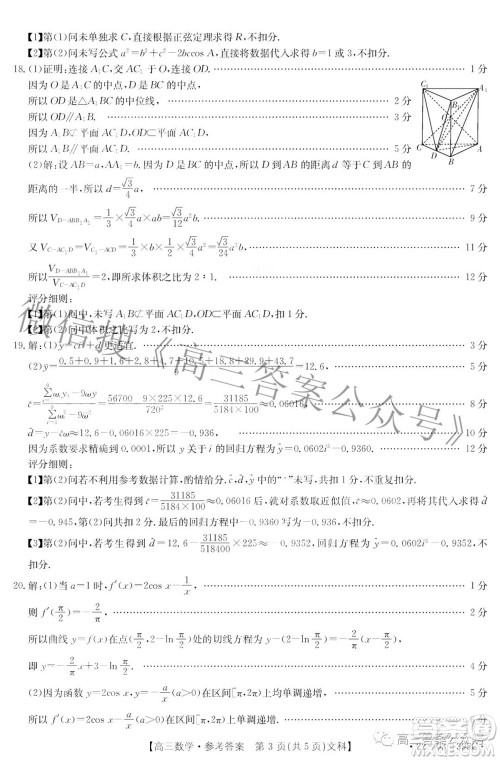 【1】第(1)问未单独求C,直接根据正弦定理求得R,不扣分.
【2】第(2)问未写公式a²=b²+c²-2bccos A,直接将数据代入求得b=1或3,不扣分.
18.(1)证明:连接A₁C,交AC₁于O,连接OD. 1分
因为O是A₁C的中点,D是BC的中点,
所以OD是△A₁BC的中位线, 2分
所以OD∥A₁B. 3分
因为A₁B⊄平面AC₁D,OD⊂平面AC₁D,所以A₁B∥平面AC₁D. 5分
(2)解:设AB=a,AA₁=b.因为D是BC的中点,所以D到AB的距离d等于C到AB的
距离的一半,所以d=√3/4 a, 7分
所以V_{D-ABB₁A₁}=1/3×√3/4 a×ab=√3/12 a²b. 9分
又V_{C-AC₁D}=V_{C₁-ACD}=1/3×b×1/2×√3/4 a²=√3/24 a²b, 11分
所以V_{D-ABB₁A₁}/V_{C-AC₁D}=2,即所求体积之比为2:1. 12分
评分细则:
【1】第(1)问中,未写A₁B⊄平面AC₁D,扣1分.
【2】第(2)问中体积之比写为2,不扣分.
19.解:(1)y=ci+d更适宜. 2分
(2)ȳ=(0.5+0.9+1.6+2.3+ +10.5+18.8+29.9+43.7)/9=12.6, 5分
=(56700-9×225×12.6)/720²=31185/(5184×100)≈0.06016, 8分
=12.6-0.06016×225≈-0.936, 10分
因为系数要求精确到0.0001,所以y关于i的回归方程为ŷ=0.0602i-0.9360. 12分
评分细则:
【1】第(2)问若不利用参考数据计算,酌情给分,ĉ,d̂,ŷ中的“^”未写,共扣1分,不重复扣分.
【2】第(2)问中,若考生得到ĉ=31185/518400≈0.06016后,误认为此数据是近似后的数据,进而得d̂
=-0.945,第(2)问共扣2分.最后的回归方程中-0.9360写为-0.936,不扣分.
【3】第(2)问中,若考生得到d̂=12.6-31185/518400×225≈-0.9352,最后的回归方程为ŷ=0.0602i-0.9352,不
扣分.
20.解:(1)当a=1时,f′(x)=2cos x-1/x, 1分
则f′(π/2)=-2/π, 2分
所以曲线y=f(x)在点(π/2,2-ln π/2)处的切线方程为y-(2-ln π/2)=-2/π(x-π/2),
即y=-2/π x+3-ln π/2.
(2)因为函数y=2cos x(a>0)在区间[π,2π]上均单调递增,
所以f′(x)=2cos x (a>0)在区间[π,2π]上单调递增,
【高三数学·参考答案 第3页(共5页)文科】
微信搜《高三答案公众号》